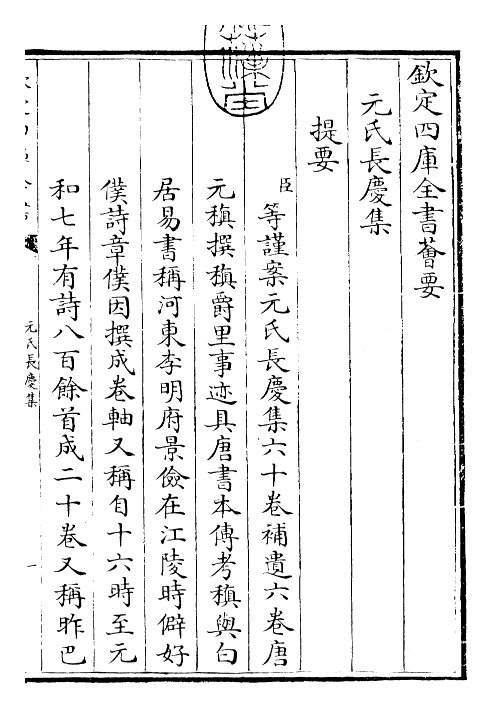 欽定四庫全書薈要
元氏長慶集
提要
臣等謹案元氏長慶集六十卷補遺六卷唐
元稹撰稹爵里事迹具唐書本傳考稹與白
居易書稱河東李明府景儉在江陵時僻好
僕詩章僕因撰成卷軸又稱自十六時至元
和七年有詩八百餘首成二十卷又稱昨巴
元氏長慶集
一